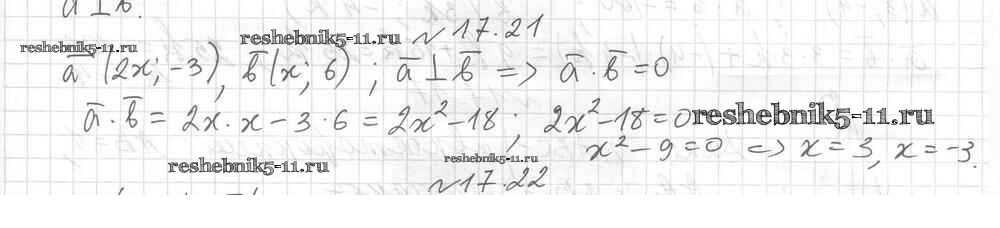 a ⊥ b.
reshebnik5-11.ru reshebnik5-11.ru №17.21
a̅ (2x; -3), b̅ (x; 6) ; a̅ ⊥ b̅ => a̅ · b̅ = 0
a̅ · b̅ = 2x · x - 3 · 6 = 2x² - 18 ; 2x² - 18 = 0 reshebnik5-11.ru
x² - 9 = 0 => x = 3, x = -3.
reshebnik5-11.ru reshebnik5-11.ru
№17.22